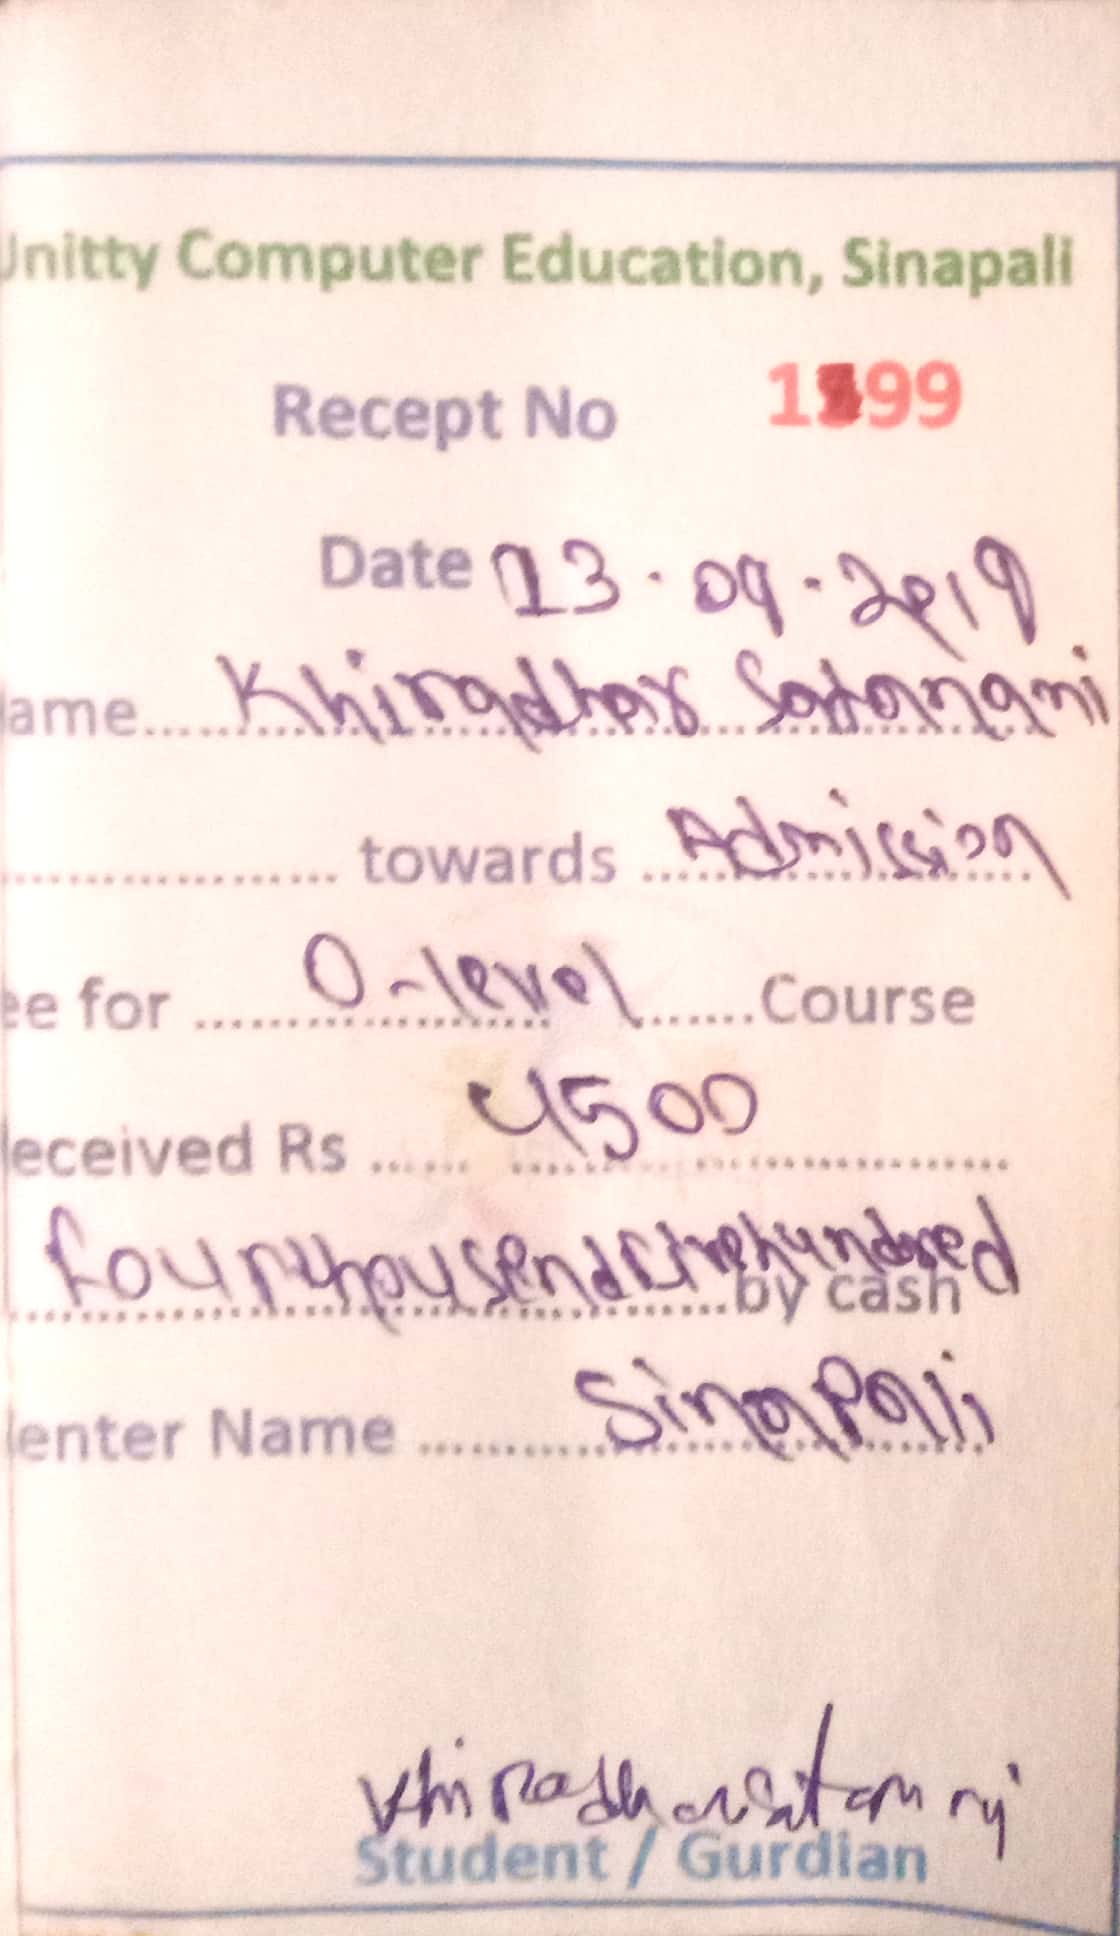 Unitty Computer Education, Sinapali
Recept No 1599
Date 13.09.2019
ame..... Khiradhar Satanami
.................... towards ... Admission
ee for ... O-level ... Course
eceived Rs ...... 4500 ..................
fourthousendfivehundred by cash
enter Name ........... Sinapali
Khiradhar Satanami
Student / Gurdian